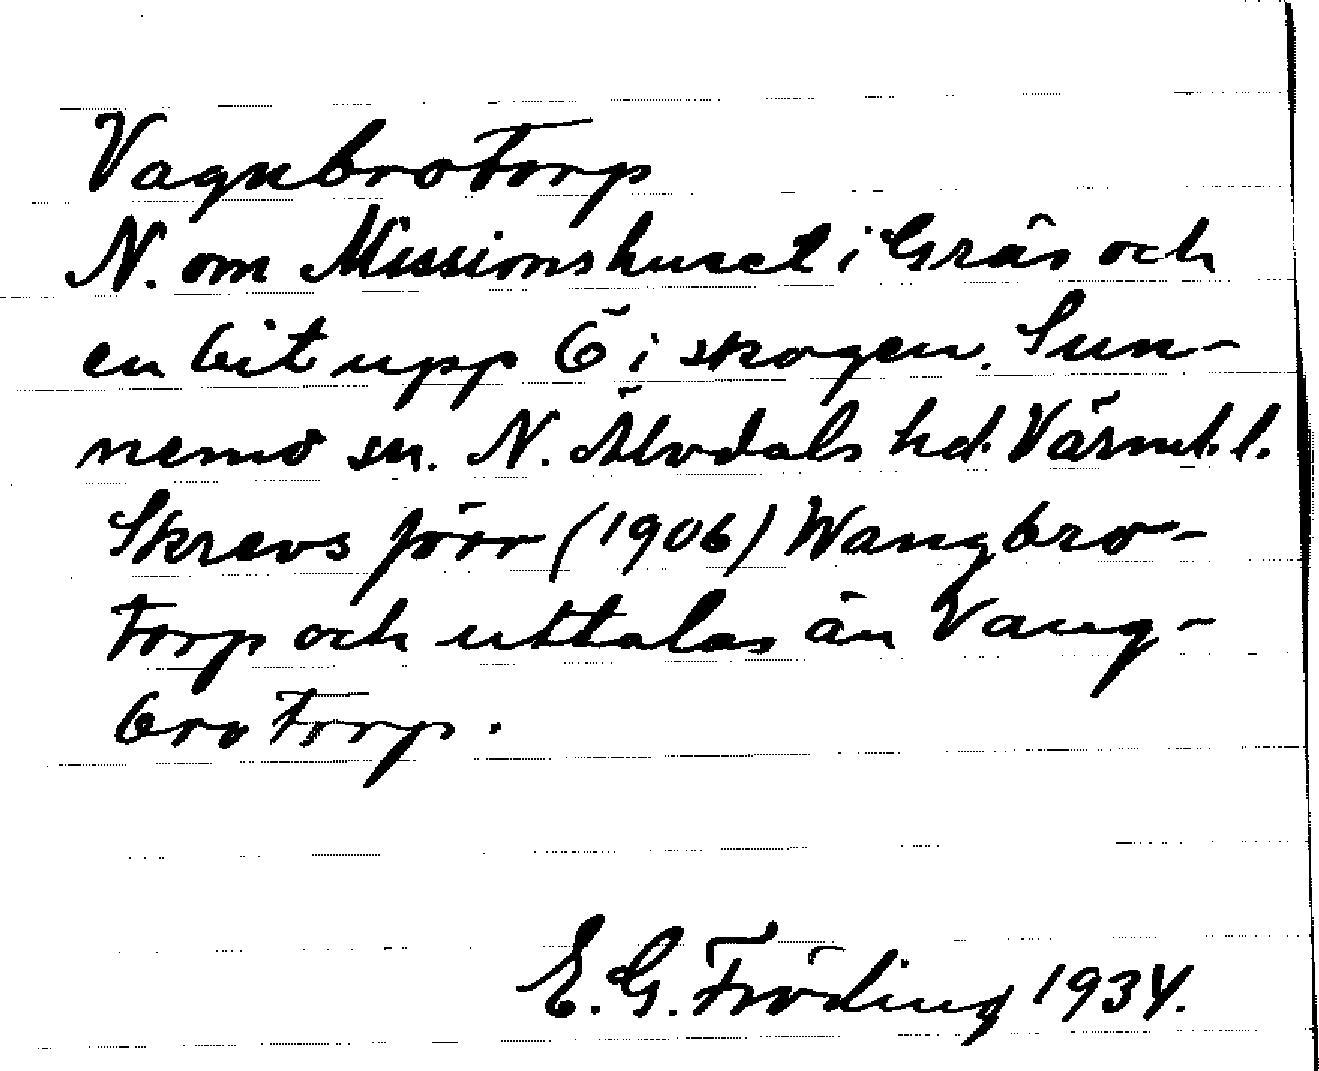 Vagnbrotorp
N. om Missionshuset i Gräs och
en bit upp Ö i skogen. Sun-
nemo sn. N. Älvdals hd. Värml. l.
Skrevs förr (1906) Wangbro-
torp och uttalas än Vang-
brotorp.
E. G. Fröding 1934.